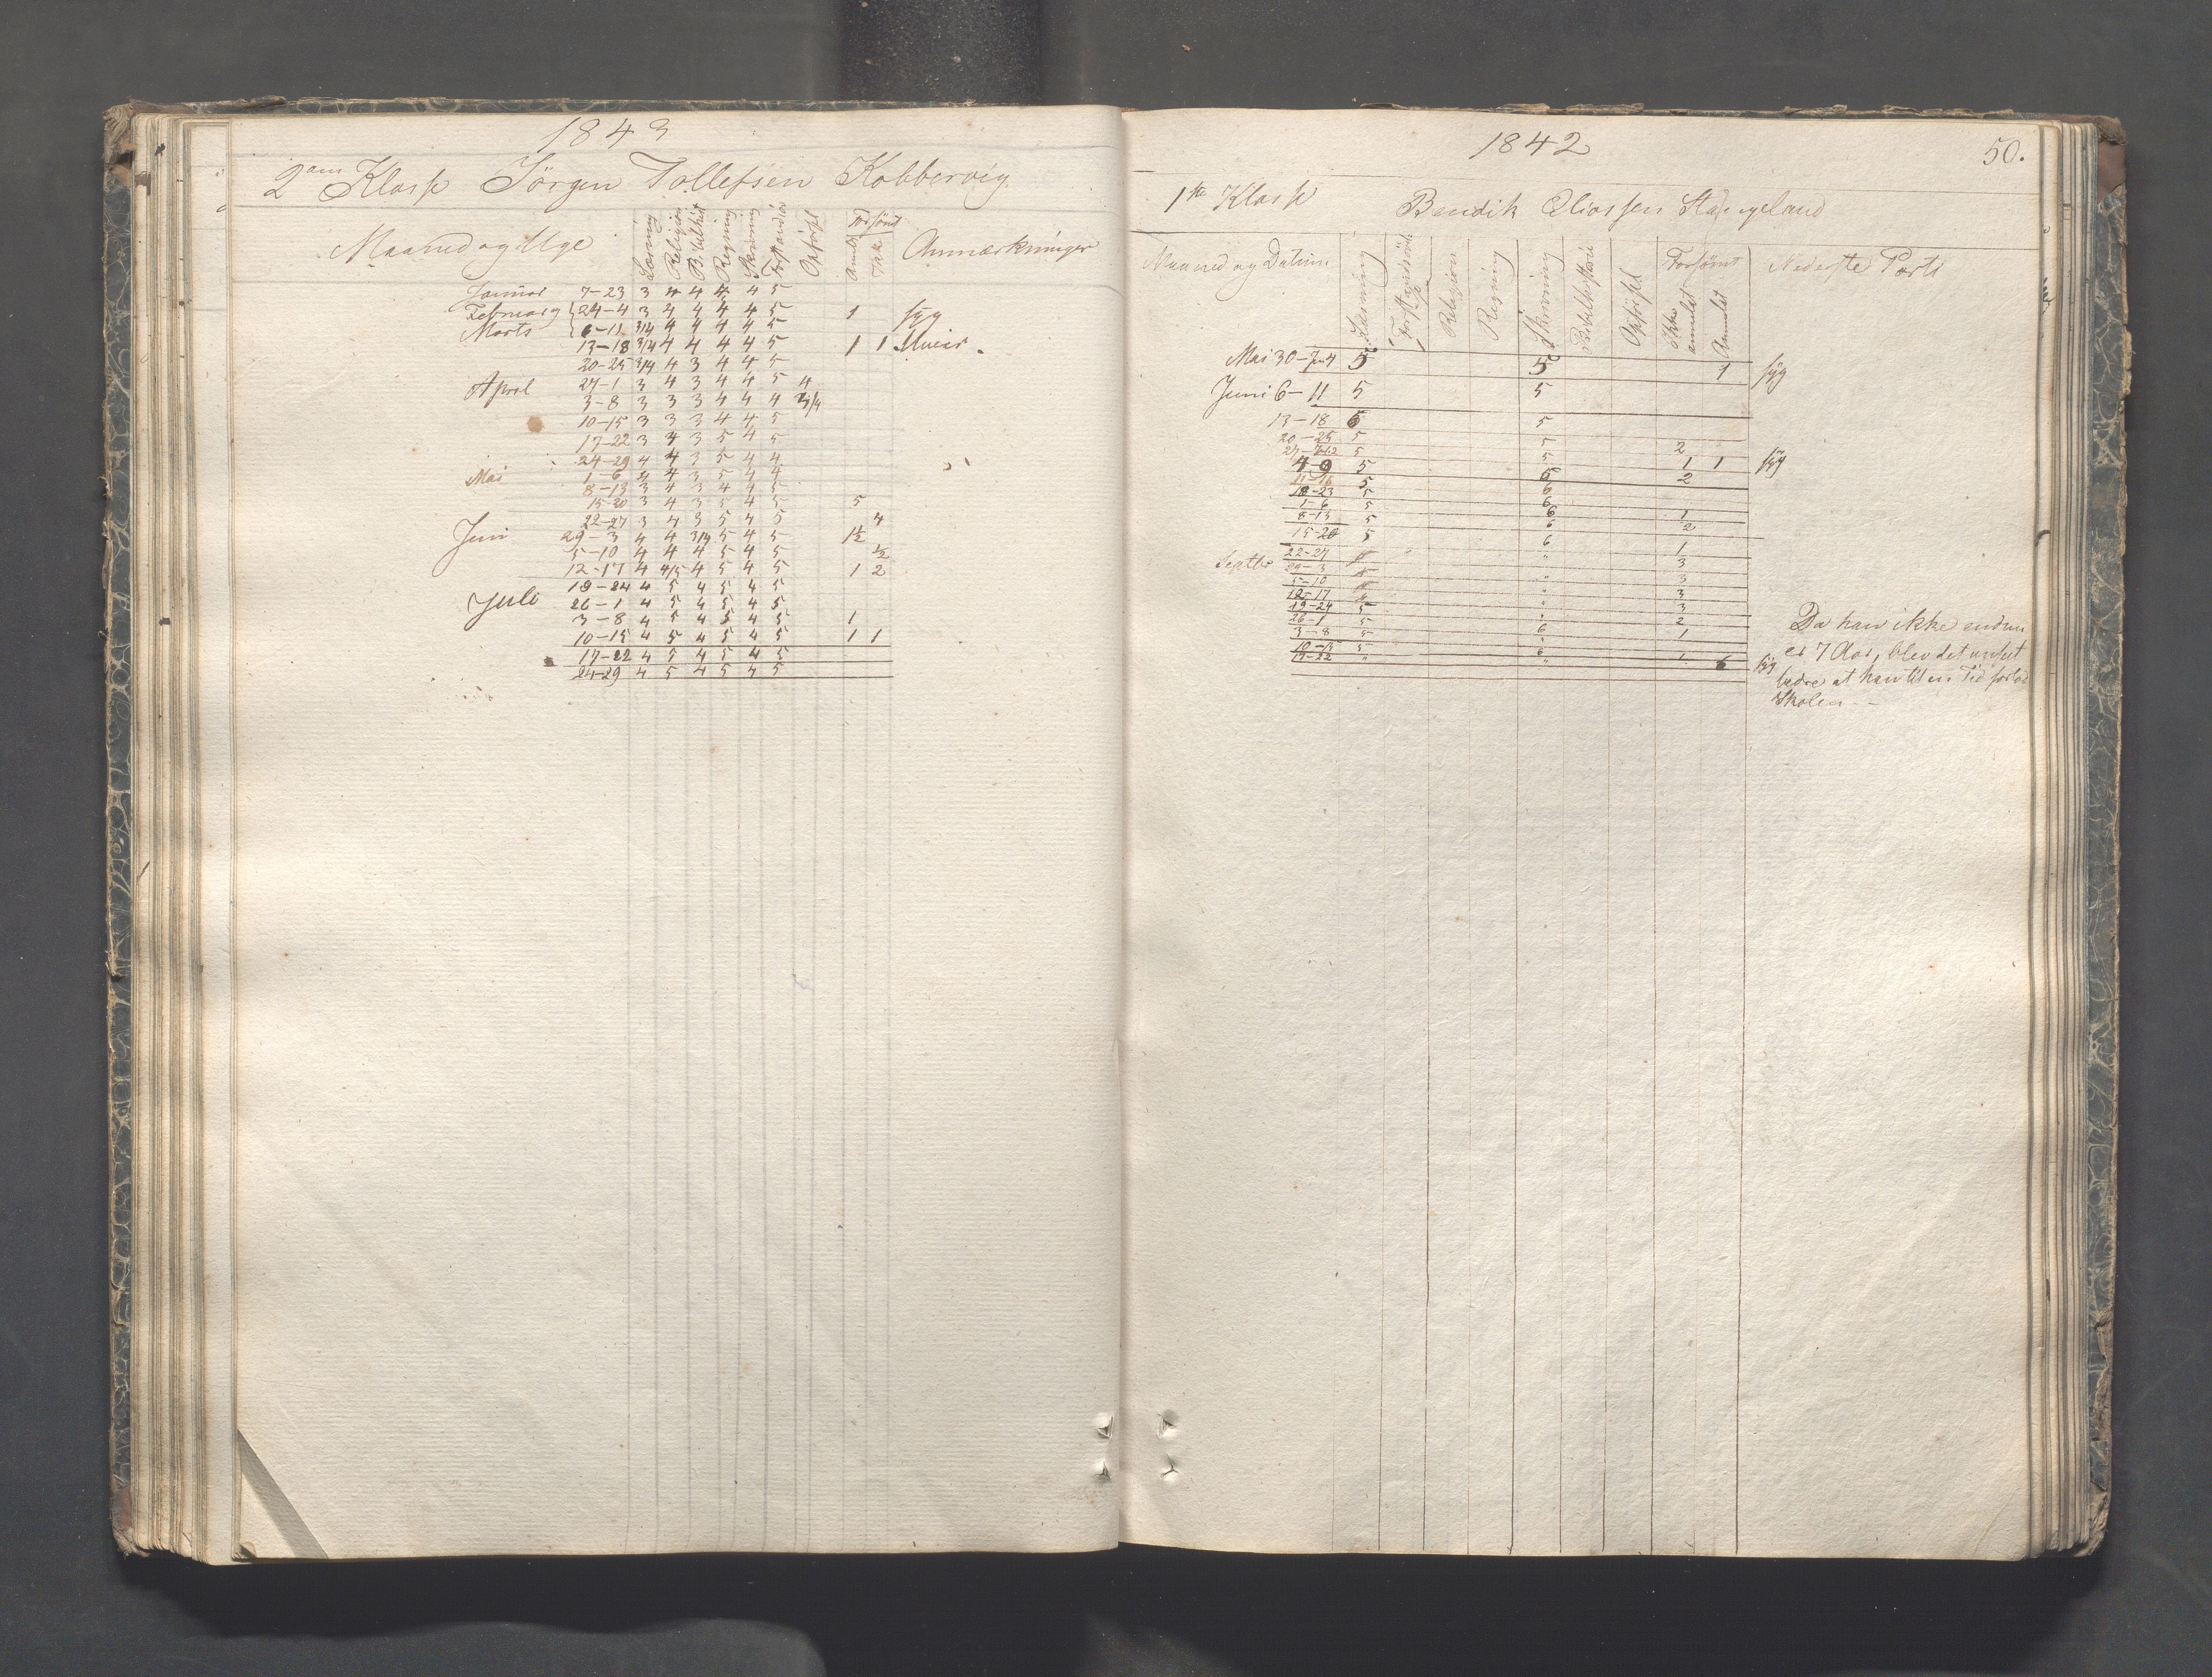 1843
2den Klasse Jörgen Tollefsen Kobbervig
Maaned og Uge Læsning Religion Bibelhist Regning Skrivning Forstandsöv Opförsel Forsömt Anmeldt Anmærkninger
Januar 7-23 3 4 4 4 4 5
Februar 24-4 3 4 4 4 4 5 1 syg
Marts 6-11 3/4 4 4 4 4 5
13-18 3/4 4 4 4 4 5 1 1 Uveir.
20-25 3/4 4 3 4 4 5
April 27-1 3 4 3 4 4 5 4
3-8 3 3 3 4 4 4
10-15 3 3 3 4 4 5
17-22 3 4 3 5 4 5
24-29 4 4 3 5 4 4
Mai 1-6 4 4 3 5 4 4
8-13 3 4 3 4 4 5
15-20 3 4 3 5 4 5 5
22-27 3 4 3 5 4 5 4
Juni 29-3 4 4 3/4 5 4 5 1½
5-10 4 4 4 5 4 5 ½
12-17 4 4/5 4 5 4 5 1 2
19-24 4 5 4 5 4 5
Juli 26-1 4 5 4 5 4 5
3-8 4 5 4 5 4 5 1
10-15 4 5 4 5 4 5 1 1
17-22 4 5 4 5 4 5
24-29 4 5 4 5 4 5
1842
50.
1ste Klasse Bendik Eliassen Stangeland
Maaned og Datum Læsning Religion Regning Skrivning Bibelhistorie Opförsel Forsömt Ikke anmeldt Anmeldt Nederste Parti
Mai 30-Jun 4 5 5 1 syg
Juni 6-11 5 5
13-18 6 5
20-25 5 5 2
5 5 1 1 syg
4-9 5 6 2
11-16 5 6
18-23 5 6
1-6 5 6 1
8-13 5 6 2
15-20 5 6 1
22-27 " 3
Septbr 29-3 " 3
5-10 " 3
12-17 " 3
19-24 5 " 2
26-1 5 6 1
3-8 5 6
10-15 5 " 1
17-22 " 6 syg
Da han ikke endnu
er 7 Aar, blev det anseet
bedre at han til en Tid forlod
Skolen -